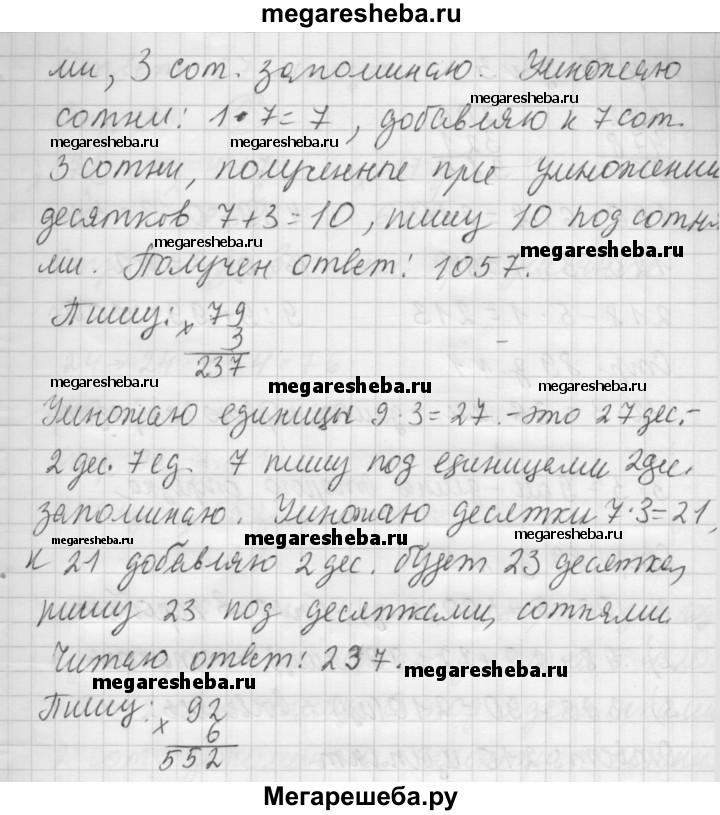 megaresheba.ru
ми, 3 сот. запоминаю. Умножаю
megaresheba.ru
сотни: 1·7=7, добавляю к 7 сот.
megaresheba.ru
3 сотни, полученные при умножении
десятков 7+3=10, пишу 10 под сотня
megaresheba.ru
megaresheba.ru
ми. Получен ответ: 1057.
Пишу: × 79
3
237
megaresheba.ru
megaresheba.ru
megaresheba.ru
Умножаю единицы 9·3=27.-это 27 дес.-
2 дес. 7 ед. 7 пишу под единицами 2дес.
запоминаю. Умножаю десятки 7·3=21,
megaresheba.ru
megaresheba.ru
megaresheba.ru
к 21 добавляю 2 дес. будет 23 десятка,
пишу 23 под десятками, сотнями.
Читаю ответ: 237.
megaresheba.ru
megaresheba.ru
Пишу: × 92
6
552
Мегарешеба.ру